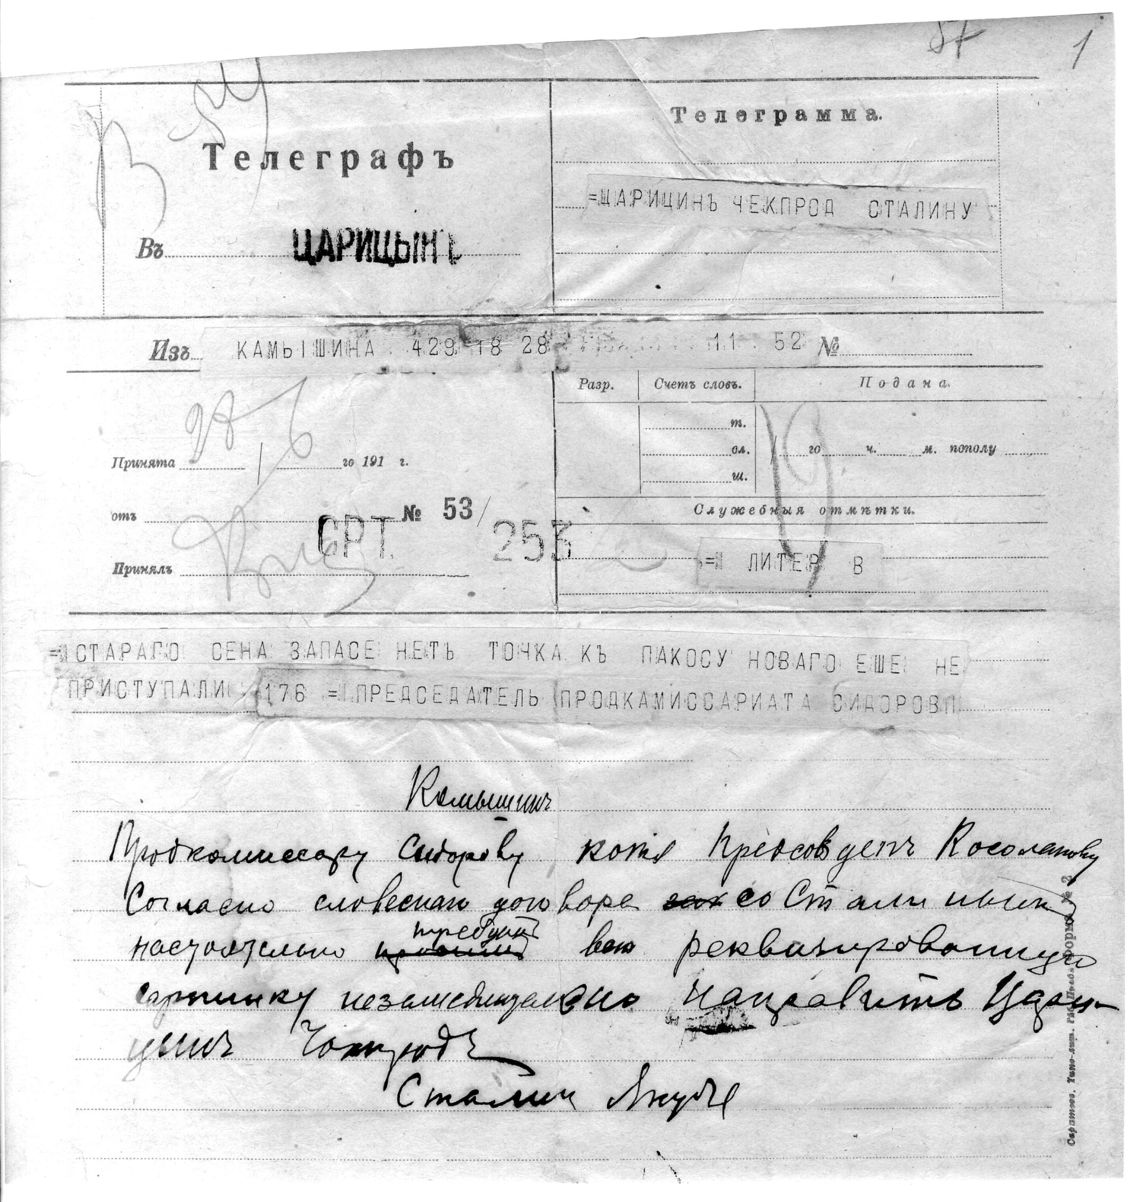 57
1
Телеграфъ
Телеграмма.
=ЦАРИЦИНЪ ЧЕКПРОД СТАЛИНУ
Въ ЦАРИЦЫНЪ
Изъ КАМЫШИНА 429 18 28 11 52 №
Разр. Счетъ словъ. Подана.
28/6
т.
ол.
ш.
19
го ч. м. пополу
Принята го 191 г.
отъ
СРТ. № 53/253
Служебныя отмѣтки.
Принялъ
= ЛИТЕР В
=СТАРАГО СЕНА ЗАПАСЕ НЕТЪ ТОЧКА КЪ ПАКОСУ НОВАГО ЕШЕ НЕ
ПРИСТУПАЛИ 176 = ПРЕДСЕДАТЕЛЬ ПРОДКАМИССАРИАТА СИДОРОВП
Камышин
Продкомиссару Сидорову копя Предсовдепъ Косолапову
Согласно словеснаго договора со Сталиным
настоятельно требуют всю реквизированную
сарпинку незамедлительно направить Цари-
цинъ Чокпродъ
Сталин
Саратовъ. Типо-лит. Форма № 2